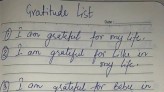 Gratitude List
① I am grateful for my life.
② I am grateful for like in
my life.
③ I am grateful for